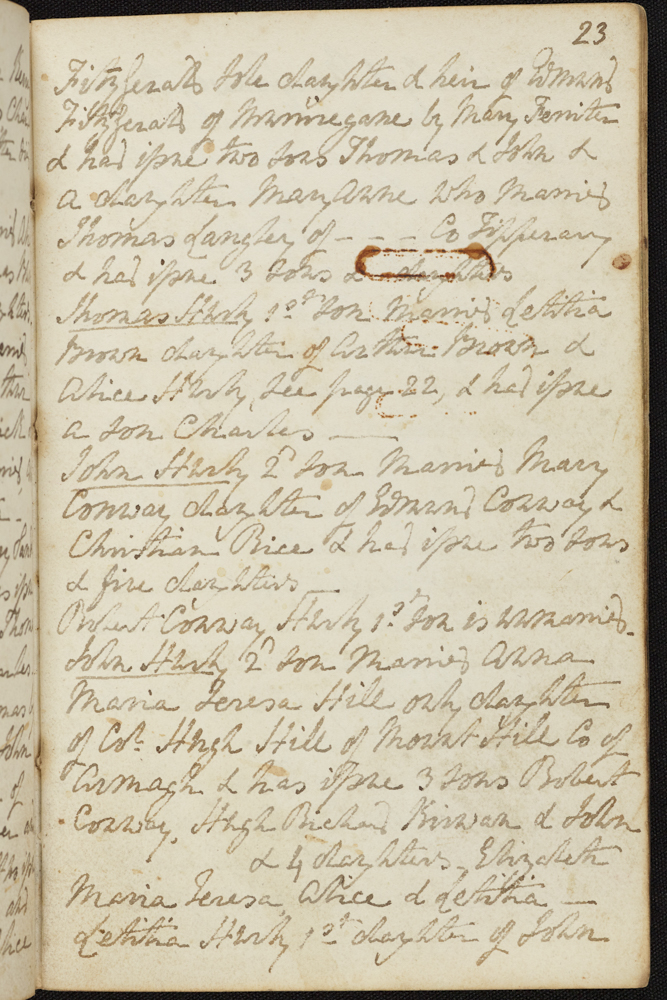 23
Fitzgerald sole daughter & heir of Edmund
Fitzgerald of Murrivegane by Mary Ferriter
& had issue two sons Thomas & John &
a daughter Mary Anne who Married
Thomas Langley of - - - Co Tipperary
& had issue 3 sons & daughters
Thomas Hurly 1st son Married Letitia
Brown daughter of Arthur Brown &
Alice Hurly, See page 22, & had issue
a son Charles —
John Hurly 2d son Married Mary
Conway daughter of Edmund Conway &
Christian Rice & had issue two sons
& five daughters —
Robert Conway Hurly 1st son is unmarried.
John Hurly 2d son Married Anna
Maria Teresa Hill only daughter
of Col. Hugh Hill of Mount Hill Co of
Armagh & has issue 3 sons Robert
Conway, Hugh Richard Kirwan & John
& 4 daughters - Elizabeth
Maria Teresa Alice & Letitia —
Letitia Hurly 1st daughter of John